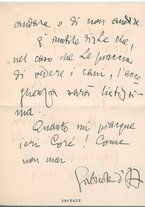 andare o di non andare.
È inutile dirLe che,
nel caso che Le piaccia
di vedere i cani, l'acco
glienza sarà lietissi
ma.
Quanto mi piacque
ieri Corè! Come
non mai.
Gabriele d'A